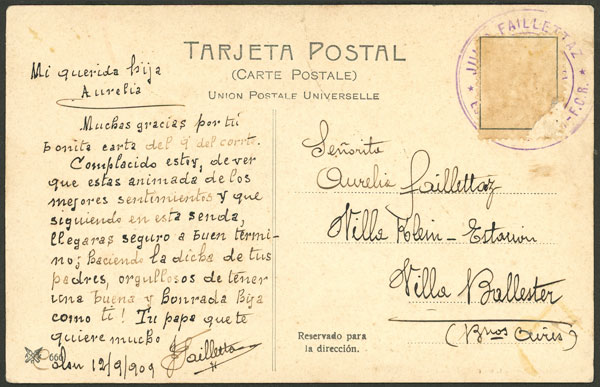 TARJETA POSTAL
(CARTE POSTALE)
UNION POSTALE UNIVERSELLE
Mi querida hija
Aurelia
Muchas gracias por tú
bonita carta del 9 del corrte.
Complacido estoy, de ver
que estas animada de los
mejores sentimientos y que
siguiendo en esta senda,
llegaras seguro a buen termi-
no; haciendo la dicha de tus
padres, orgullosos de tener
una buena y honrada hija
como ti! Tu papa que te
quiere mucho
12/9/909 Faillettaz
666
JULIO FAILLETTAZ
F.C.R.
Señorita
Aurelia Faillettaz
Villa Klein - Estacion
Villa Ballester
(Bnos Aires)
Reservado para
la dirección.